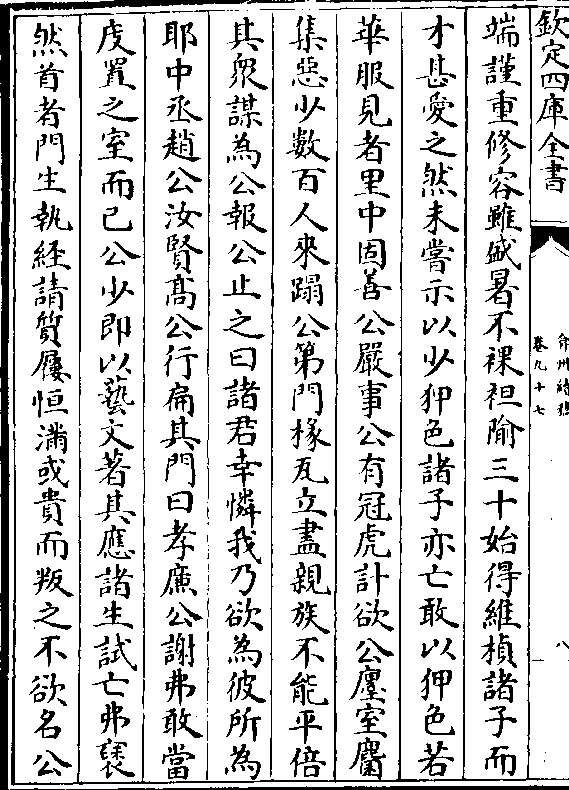 欽定四庫全書
弇州續稿
卷九十七
八
端謹重修容雖盛暑不裸袒隃三十始得維楨諸子而
才甚愛之然未嘗示以少狎色諸子亦亡敢以狎色若
華服見者里中固善公嚴事公有冠虎計欲公廛室屬
集惡少數百人來蹋公第門椽瓦立盡親族不能平倍
其衆謀為公報公止之曰諸君幸憐我乃欲為彼所為
耶中丞趙公汝賢髙公行扁其門曰孝廉公謝弗敢當
庋置之室而已公少即以藝文著其應諸生試亡弗褎
然首者門生執經請質屨恒滿或貴而叛之不欲名公